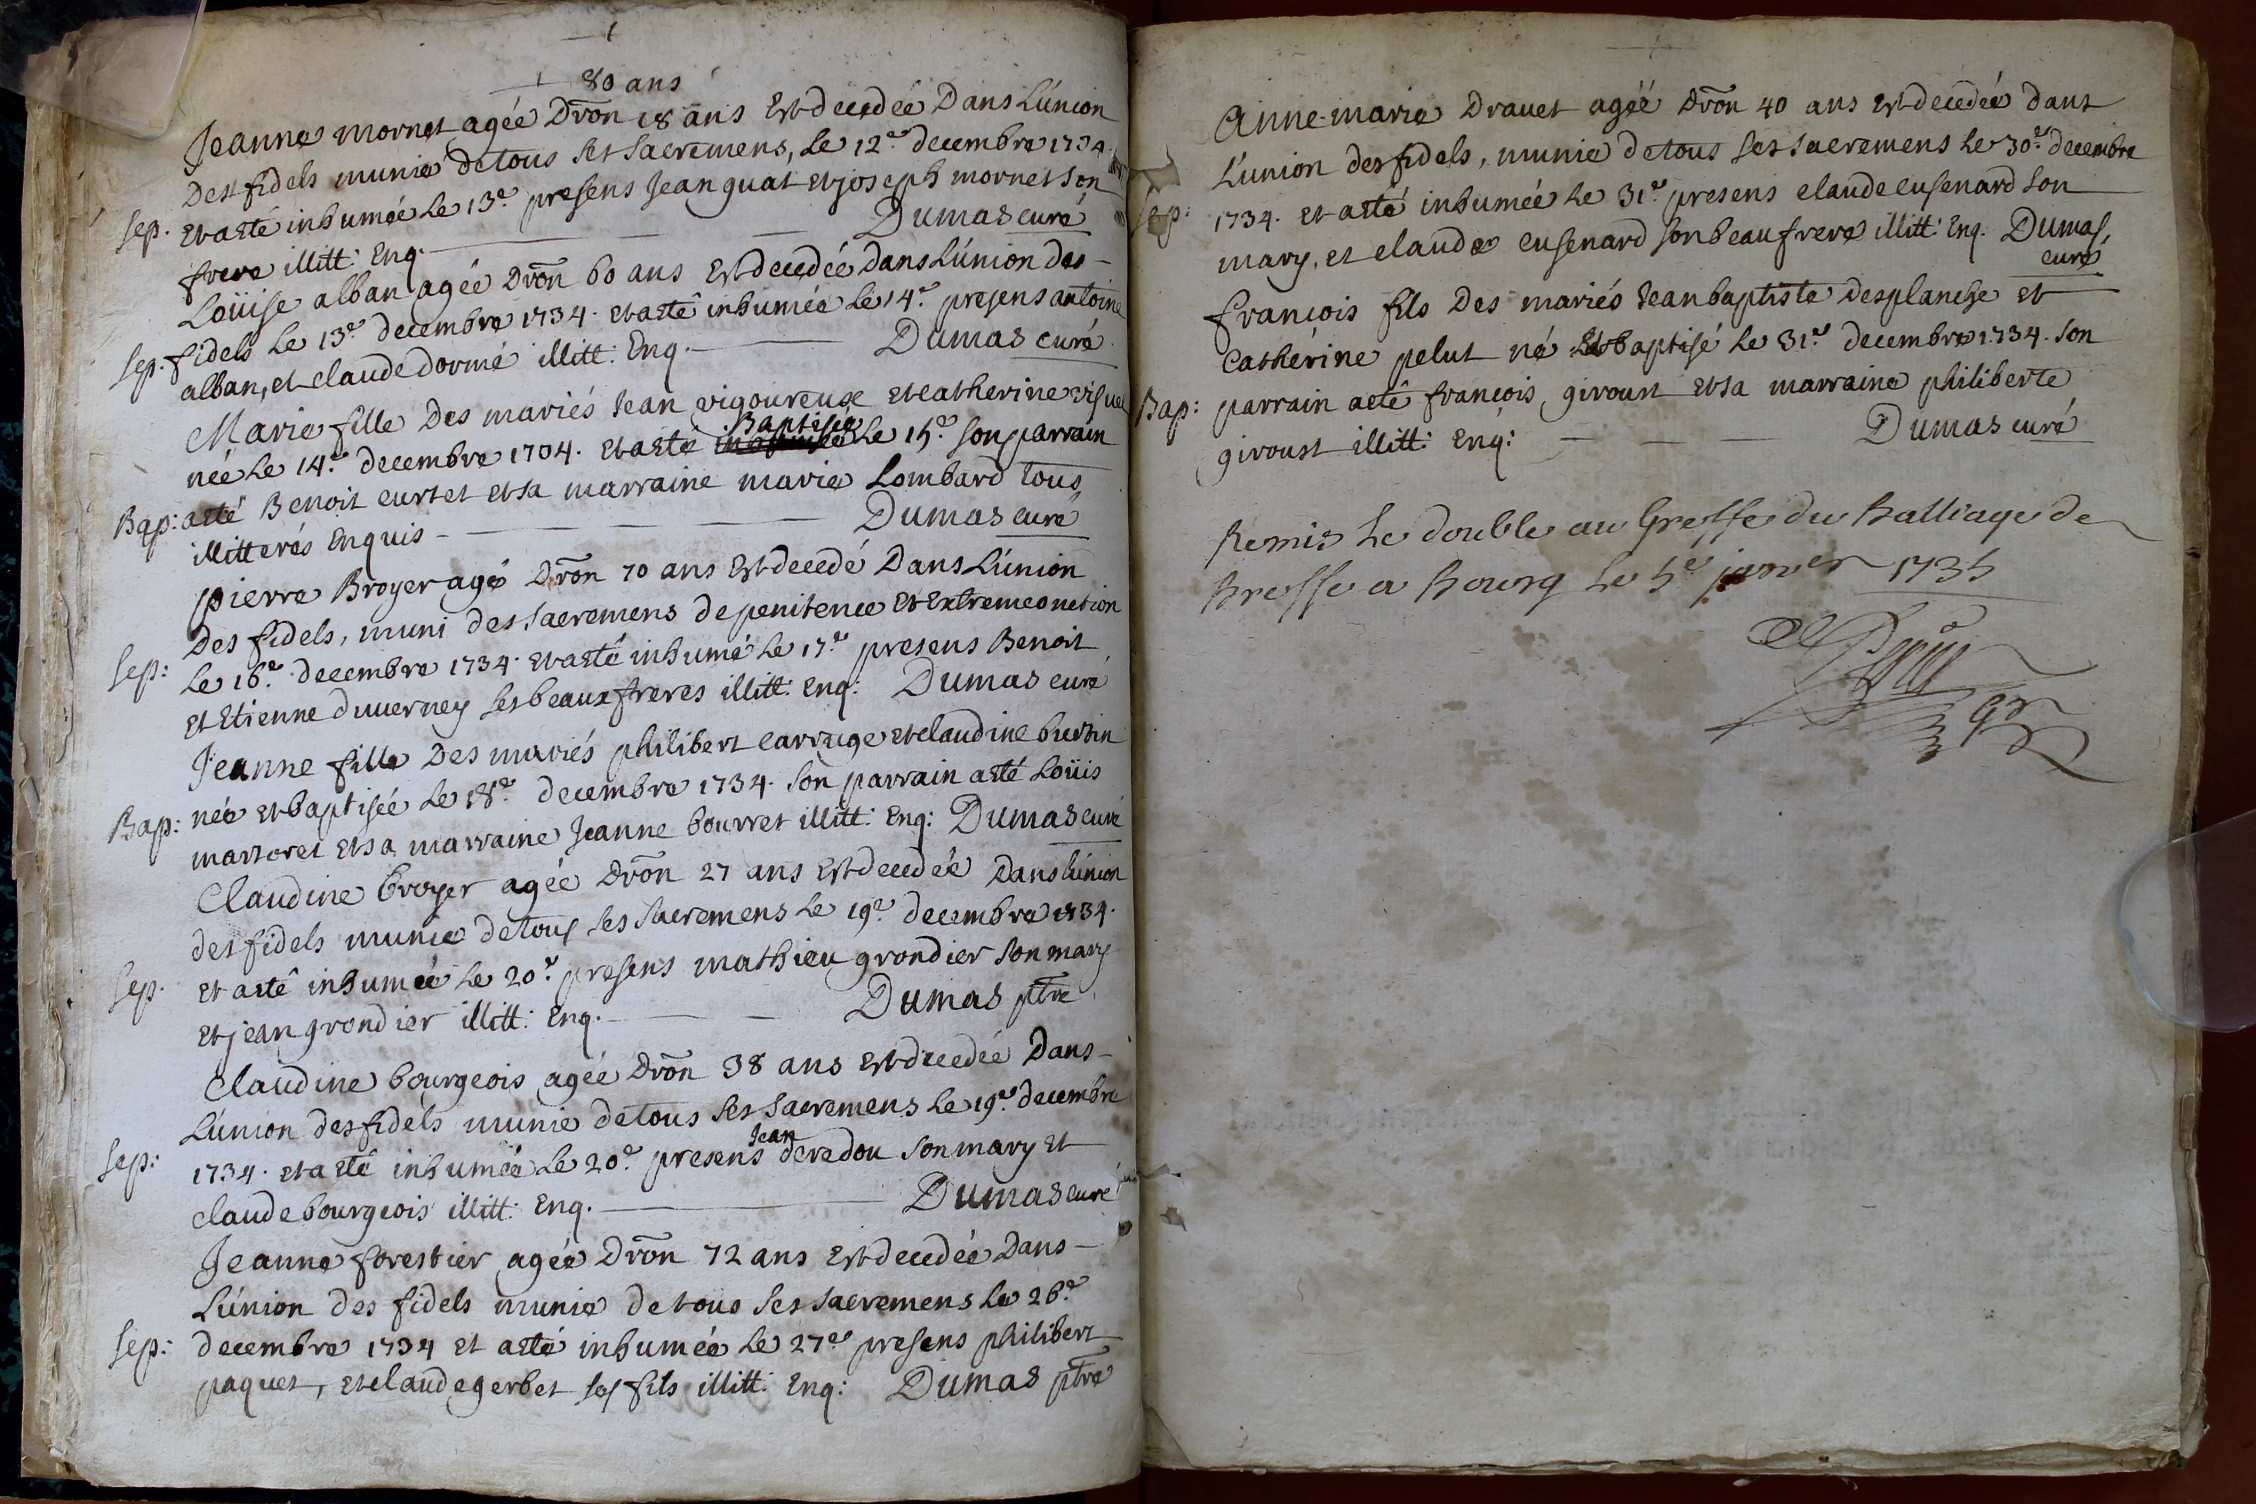 80 ans
Jeanne mornet agée Dron 18 ans Est decedée Dans L'union
Des fidels munie de tous ses sacremens, Le 12.e decembre 1734.
Sep. Et a eté inhumée Le 13.e presens Jean guat et joseph mornet son
frere illitt: Enq. Dumas curé
Loüise alban agée Dron 60 ans Est decedée Dans L'union des
Sep. fidels Le 13.e decembre 1734. Et a eté inhumée Le 14.e presens antoine
alban, et claude dormé illitt: Enq. Dumas curé
Marie fille Des mariés Jean vigoureux et catherine
Baptisée
née Le 14.e decembre 1734. Et a eté Le 15.e son parrain
Bap: a eté Benoit curtet et sa marraine marie Lombard tous
illitterés Enquis Dumas curé
pierre Broyer agé Dron 70 ans Est decedé Dans L'union
Des fidels, muni des sacremens de penitence Et Extreme onction
Sep: Le 16.e decembre 1734. Et a eté inhumé Le 17.e presens Benoit
et Etienne duverney ses beaux freres illitt: Enq: Dumas curé
Jeanne fille Des mariés philibert carruge et claudine burtin
Bap: née et baptisée Le 18.e decembre 1734. son parrain a eté Loüis
martoret et sa marraine Jeanne bourret illitt: Enq: Dumas curé
Claudine broyer agée Dron 27 ans Est decedée Dans L'union
des fidels munie de tous ses sacremens Le 19.e decembre 1734.
Sep. et a eté inhumée Le 20.e presens mathieu grondier son mary
et jean grondier illitt: Enq. Dumas ptre
Claudine bourgeois agée Dron 38 ans Est decedée Dans
L'union des fidels munie de tous ses sacremens Le 19.e decembre
Jean
Sep: 1734. et a eté inhumée Le 20.e presens deredou son mary et
claude bourgeois illitt: Enq. Dumas curé
Jeanne forestier agée Dron 72 ans Est decedée Dans
L'union des fidels munie de tous ses sacremens Le 26.e
Sep: decembre 1734 et a eté inhumée Le 27.e presens philibert
paquet, et claude gerbet ses fils illitt: Enq: Dumas ptre
Anne-marie Dravet agée Dron 40 ans Est decedée dans
L'union des fidels, munie de tous ses sacremens Le 30.e decembre
Sep: 1734. et a eté inhumée Le 31.e presens claude cusenard son
mary, et claude cusenard son beaufrere illitt: Enq. Dumas
curé
françois fils Des mariés Jean baptiste desplanche et
Catherine pelut né Et baptisé Le 31.e decembre 1734. son
Bap: parrain a eté françois giroust et sa marraine philiberte
giroust illitt: Enq: Dumas curé
Remis Le double au Greffe du Balliage de
Bresse a Bourg Le 5.e janver 1735